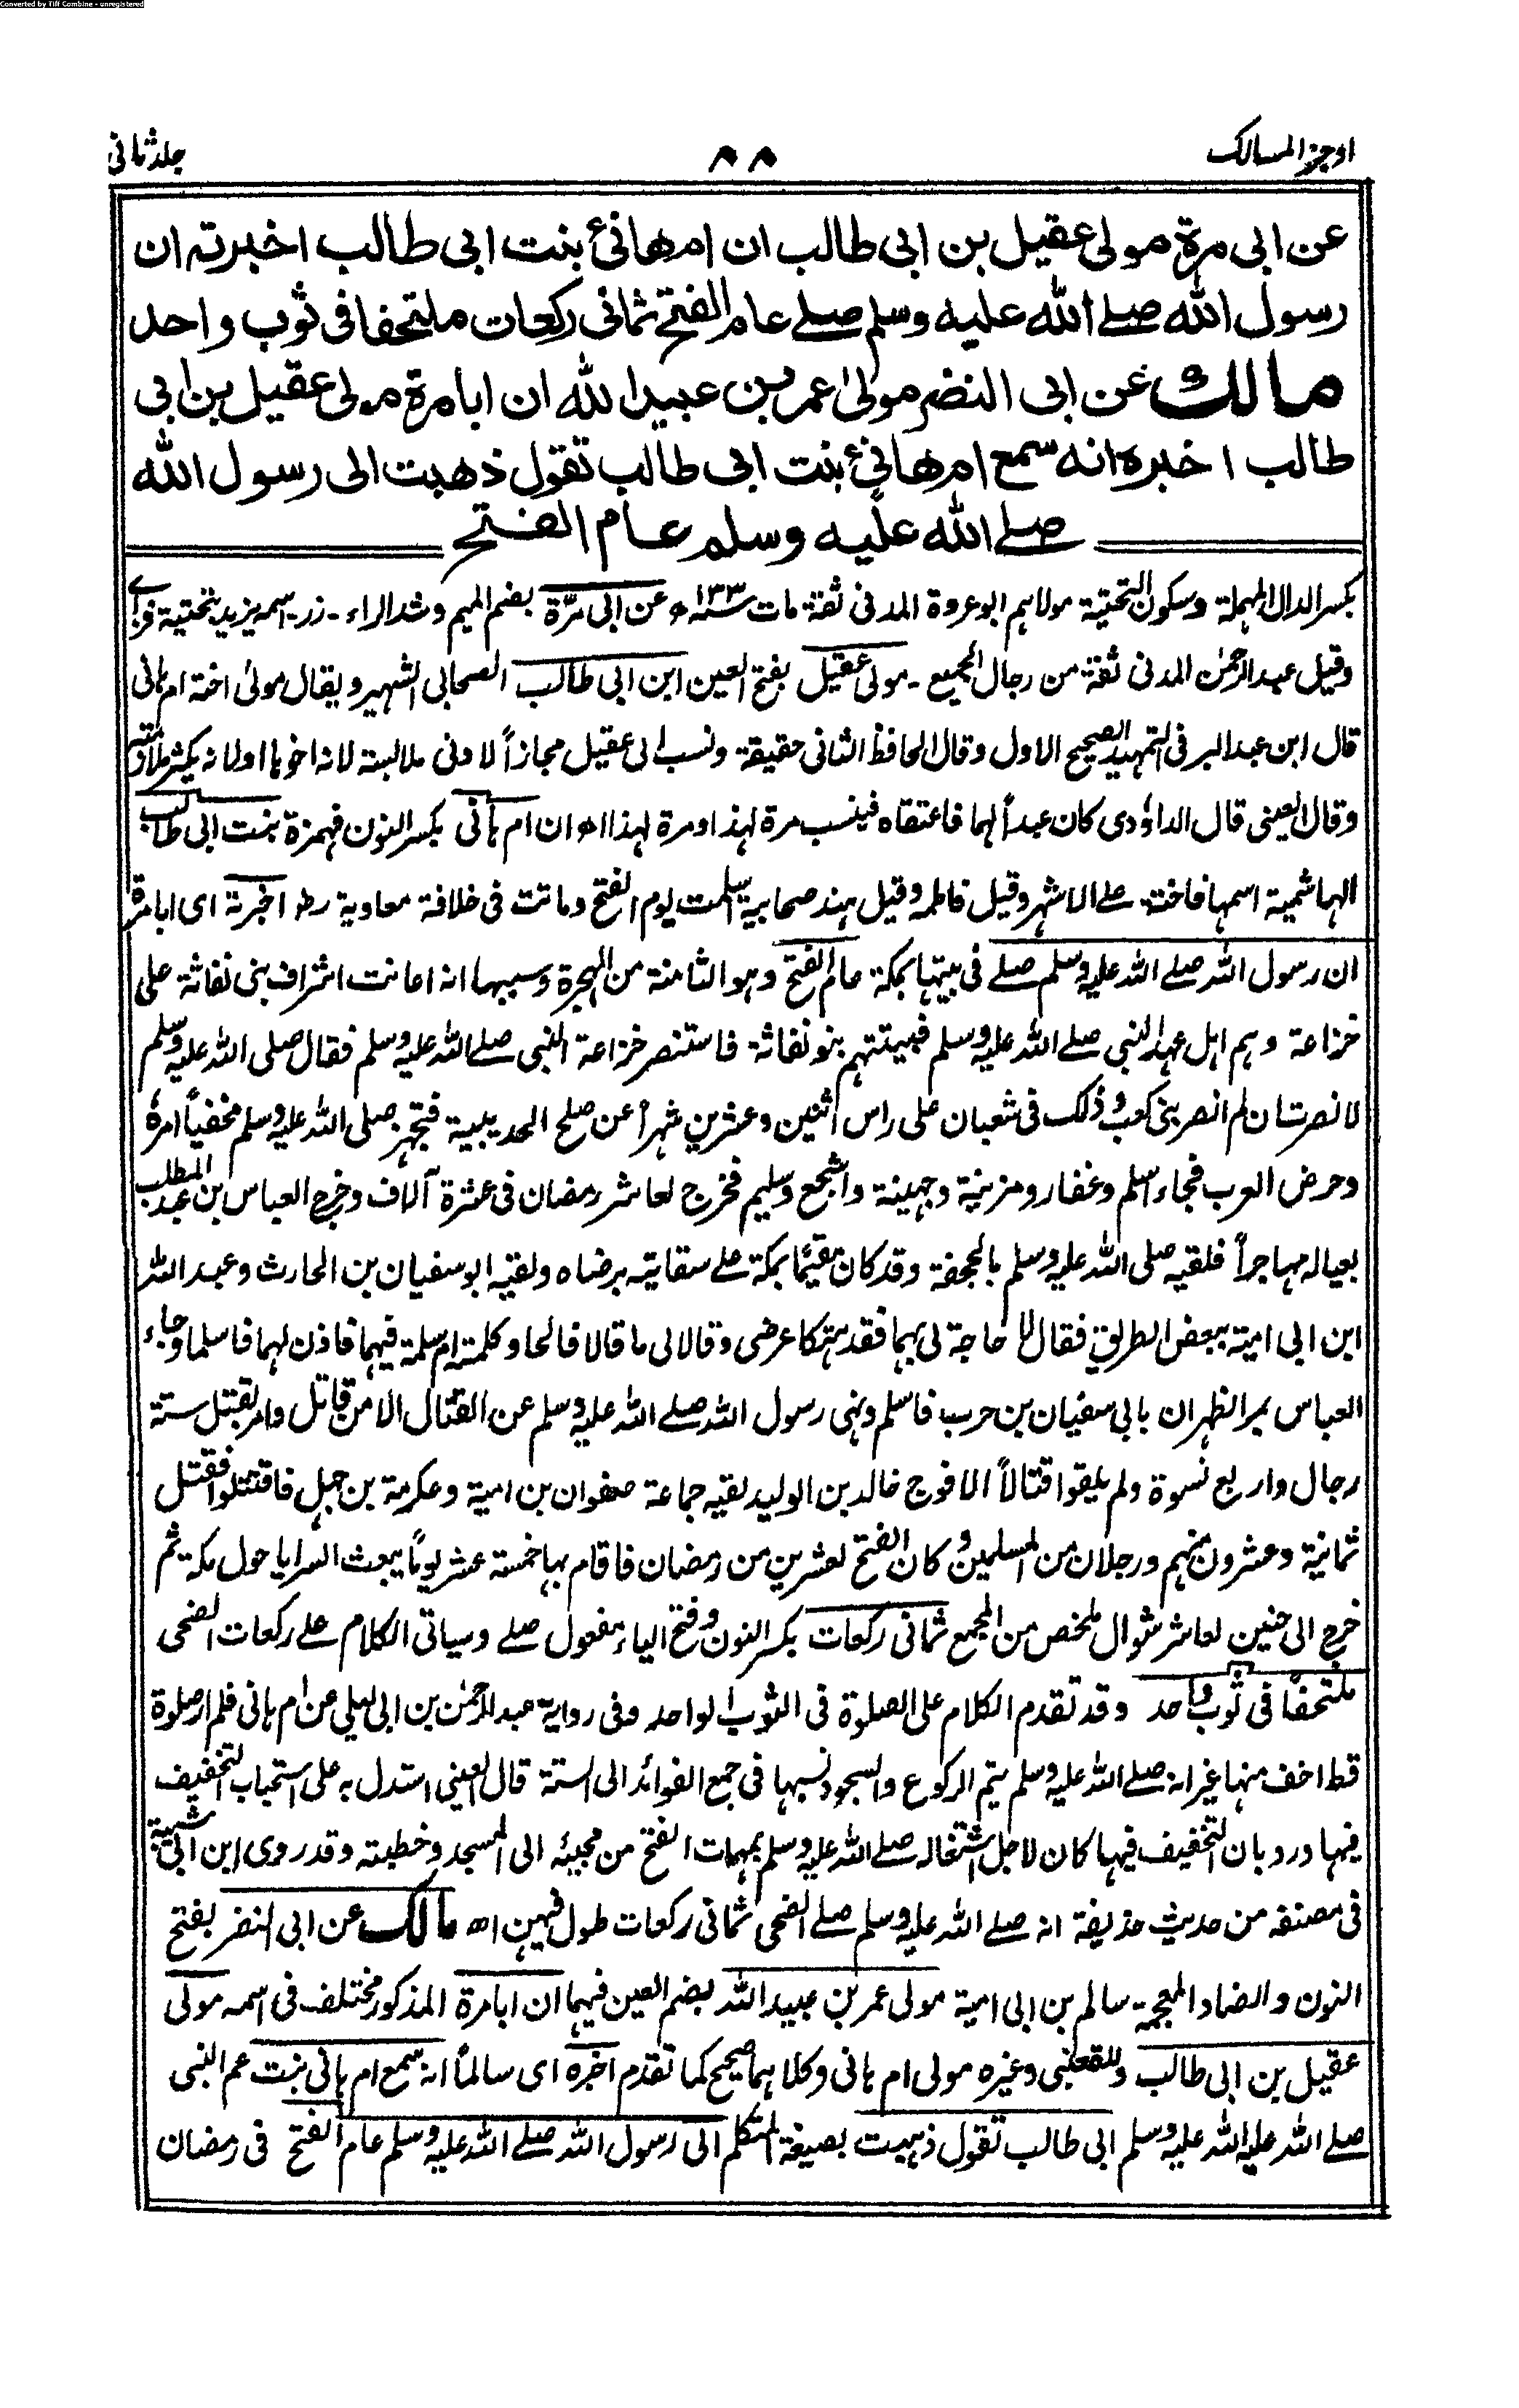 Converted by Tiff Combine - unregistered
اوجز المسالك ٨٨ جلد ثانی
عن ابی مرة مولی عقیل بن ابی طالب ان ام هانئ بنت ابی طالب اخبرته ان
رسول الله صلے الله علیه وسلم صلے عام الفتح ثمانی رکعات ملتحفا فی ثوب واحد
مالك عن ابی النضر مولیٰ عمر بن عبید الله ان ابا مرة مولی عقیل بن ابی
طالب اخبره انه سمع ام هانئ بنت ابی طالب تقول ذهبت الی رسول الله
صلے الله علیه وسلم عام الفتح
بکسر الدال المهملة وسکون التحتیة مولاہم ابو عروة المدنی ثقة مات سنہ ۱۳۳ھ عن ابی مرّة بضم المیم وشد الراء - زر - اسمہ یزید بتحتیة فزای
وقیل عبد الرحمٰن المدنی ثقة من رجال الجمیع - مولی عقیل بفتح العین ابن ابی طالب الصحابی الشہیر ویقال مولیٰ اختہ ام ہانی
قال ابن عبد البر فی التمہید الصحیح الاول وقال الحافظ الثانی حقیقة ونسب الی عقیل مجازاً لادنی ملابسة لانہ اخوہا اولانہ یکثر ملازمتہ
وقال العینی قال الداوٗدی کان عبداً لہما فاعتقاہ فینسب مرة لہذا ومرة لہذا اھ ان ام ہانی بکسر النون فہمزة بنت ابی طالب
الہاشمیة اسمہا فاختة علے الاشہر وقیل فاطمة وقیل ہند صحابیة اسلمت یوم الفتح وماتت فی خلافة معاویة رضہ اخبرتہ ای ابا مرة
ان رسول اللہ صلے اللہ علیہ وسلم صلے فی بیتہا بمکة عام الفتح وہو الثامنة من الہجرة وسببہا انہ اعانت اشراف بنی نفاثة علی
خزاعة وہم اہل عہد النبی صلے اللہ علیہ وسلم فبیتتہم بنو نفاثة فاستنصر خزاعة النبی صلے اللہ علیہ وسلم فقال صلی اللہ علیہ وسلم
لا نصرت ان لم انصر بنی کعب وذلک فی شعبان علی راس اثنین وعشرین شہراً عن صلح الحدیبیة فتجہز صلی اللہ علیہ وسلم مخفیاً امرہ
وحرض العرب فجاء اسلم وغفار ومزینة وجہینة واشجع وسلیم فخرج لعاشر رمضان فی عشرة آلاف وخرج العباس بن عبد المطلب
بعیالہ مہاجراً فلقیہ صلی اللہ علیہ وسلم بالجحفة وقد کان مقیمًا بمکة علے سقایتہ برضاہ ولقیہ ابو سفیان بن الحارث وعبد اللہ
ابن ابی امیة ببعض الطریق فقال لا حاجة لی بہما فقد ہتکا عرضی وقالا لی ما قالا فالحا وکلمتہ ام سلمة فیہما فاذن لہما فاسلما وجاء
العباس بمر الظہران بابی سفیان بن حرب فاسلم ونہی رسول اللہ صلے اللہ علیہ وسلم عن القتال الا من قاتل وامر بقتل ستة
رجال واربع نسوة ولم یلقوا قتالاً الا فوج خالد بن الولید لقیہ جماعة صفوان بن امیة وعکرمة بن جہل فاقتتلوا فقتل
ثمانیة وعشرون منہم ورجلان من المسلمین وکان الفتح لعشرین من رمضان فاقام بہا خمسة عشر یومًا یبعث السرایا حول مکة ثم
خرج الی حنین لعاشر شوال ملخص من المجمع ثمانی رکعات بکسر النون وفتح الیاء مفعول صلے وسیاتی الکلام علے رکعات الضحی
ملتحفًا فی ثوب واحد وقد تقدم الکلام علی الصلوة فی الثوب الواحد وفی روایة عبد الرحمٰن بن ابی لیلی عن ام ہانی فلم ار صلوة
قط اخف منہا غیر انہ صلے اللہ علیہ وسلم یتم الرکوع والسجود ونسبہا فی جمع الفوائد الی الستة قال العینی استدل بہ علی استحباب التخفیف
فیہا ورد بان التخفیف فیہا کان لاجل اشتغالہ صلے اللہ علیہ وسلم بمہمات الفتح من مجیئہ الی المسجد وخطبتہ وقد روی ابن ابی شیبة
فی مصنفہ من حدیث حذیفة انہ صلے اللہ علیہ وسلم صلے الضحی ثمانی رکعات طول فیہن اھ مالک عن ابی النضر بفتح
النون والضاد المعجمة - سالم بن ابی امیة مولی عمر بن عبید اللہ بضم العین فیہما ان ابا مرة المذکور مختلف فی اسمہ مولی
عقیل بن ابی طالب وللقعنبی وغیرہ مولی ام ہانی وکلاہما صحیح کما تقدم اخبرہ ای سالماً انہ سمع ام ہانی بنت عم النبی
صلے اللہ علیہ اللہ علیہ وسلم ابی طالب تقول ذہبت بصیغة المتکلم الی رسول اللہ صلے اللہ علیہ وسلم عام الفتح فی رمضان